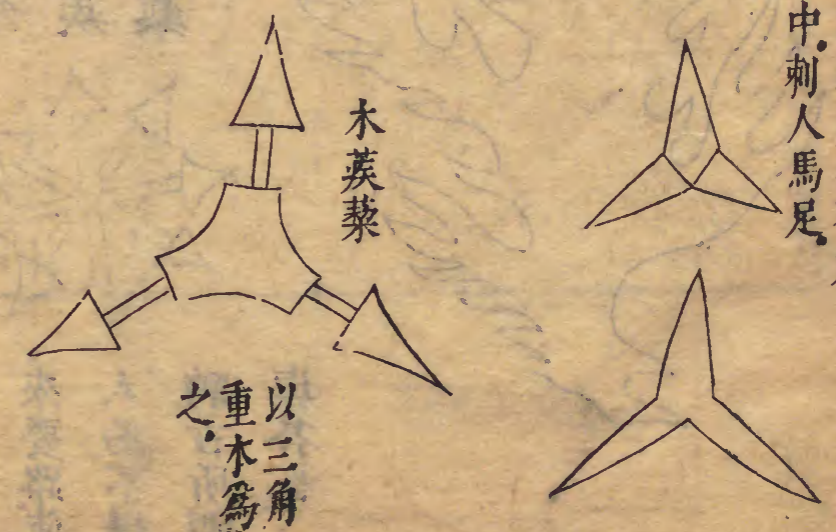 中.刺人馬足.
木蒺藜
以三角
重木爲
之.